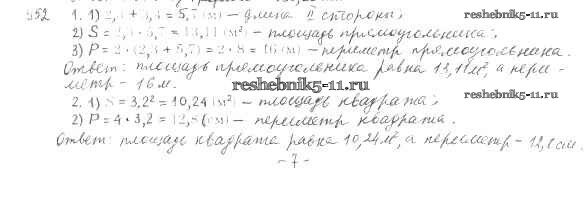 352 1. 1) 2,3 + 3,4 = 5,7 (м) – длина II стороны; reshebnik5-11.ru
2) S = 2,3 · 5,7 = 13,11 (м²) – площадь прямоугольника;
3) P = 2 · (2,3 + 5,7) = 2 · 8 = 16 (м) – периметр прямоугольника.
Ответ: площадь прямоугольника равна 13,11 м², а пери-
метр – 16 м. reshebnik5-11.ru
2. 1) S = 3,2² = 10,24 (м²) – площадь квадрата; reshebnik5-11.ru
2) P = 4 · 3,2 = 12,8 (см) – периметр квадрата.
Ответ: площадь квадрата равна 10,24 м², а периметр – 12,8 см.
- 7 -